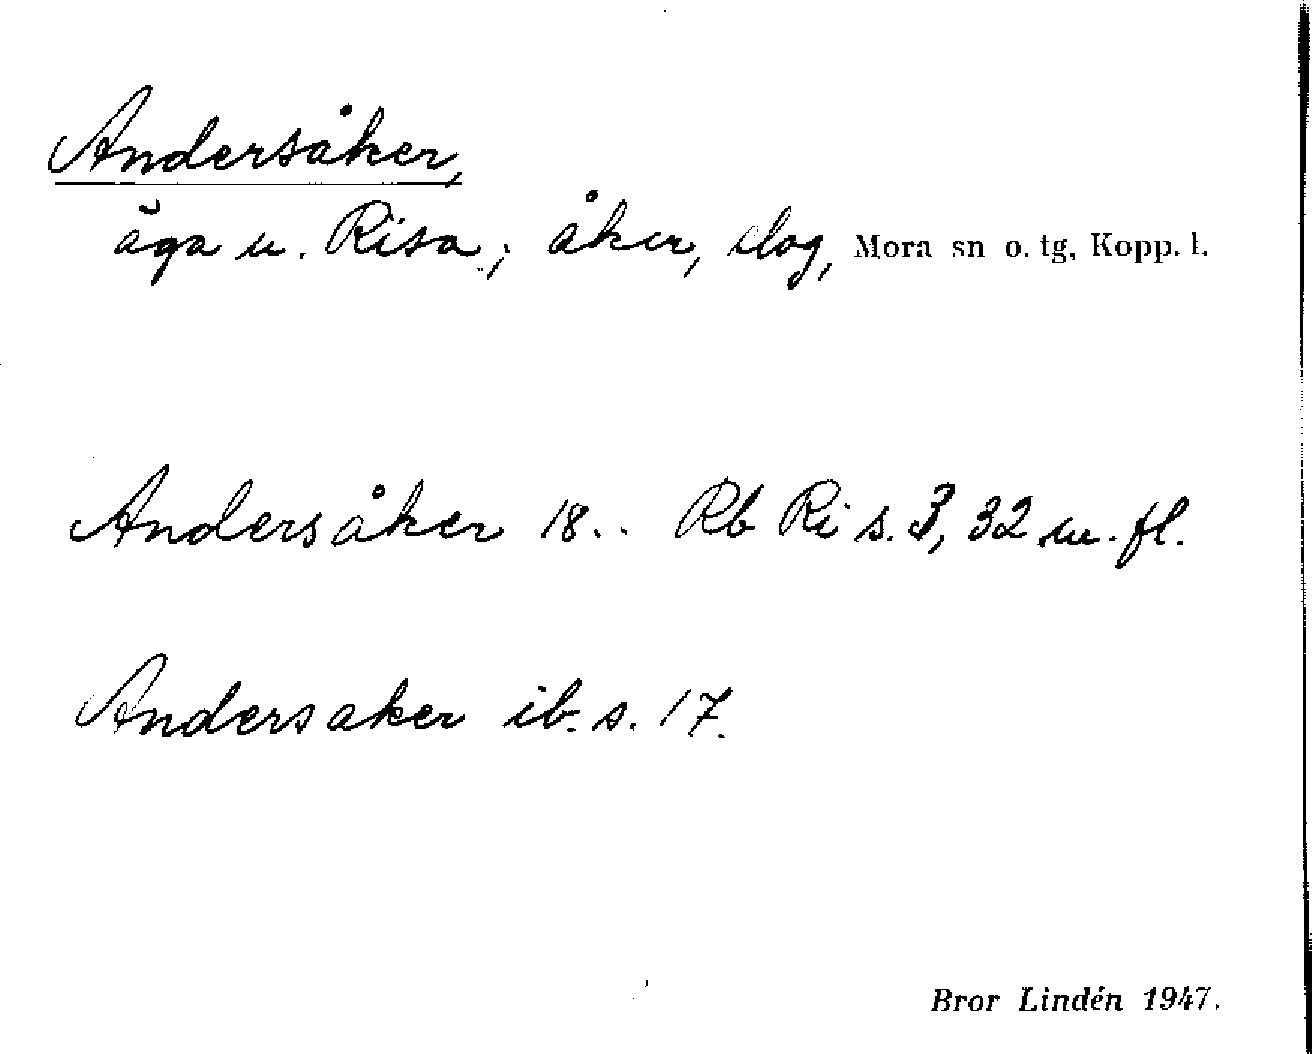 Andersåker,
äga u. Risa; åker, slog, Mora sn o. tg, Kopp. l.
Andersåker 18.. Rb Ri s. 3, 32 m. fl.
Andersaker ib. s. 17.
Bror Lindén 1947.